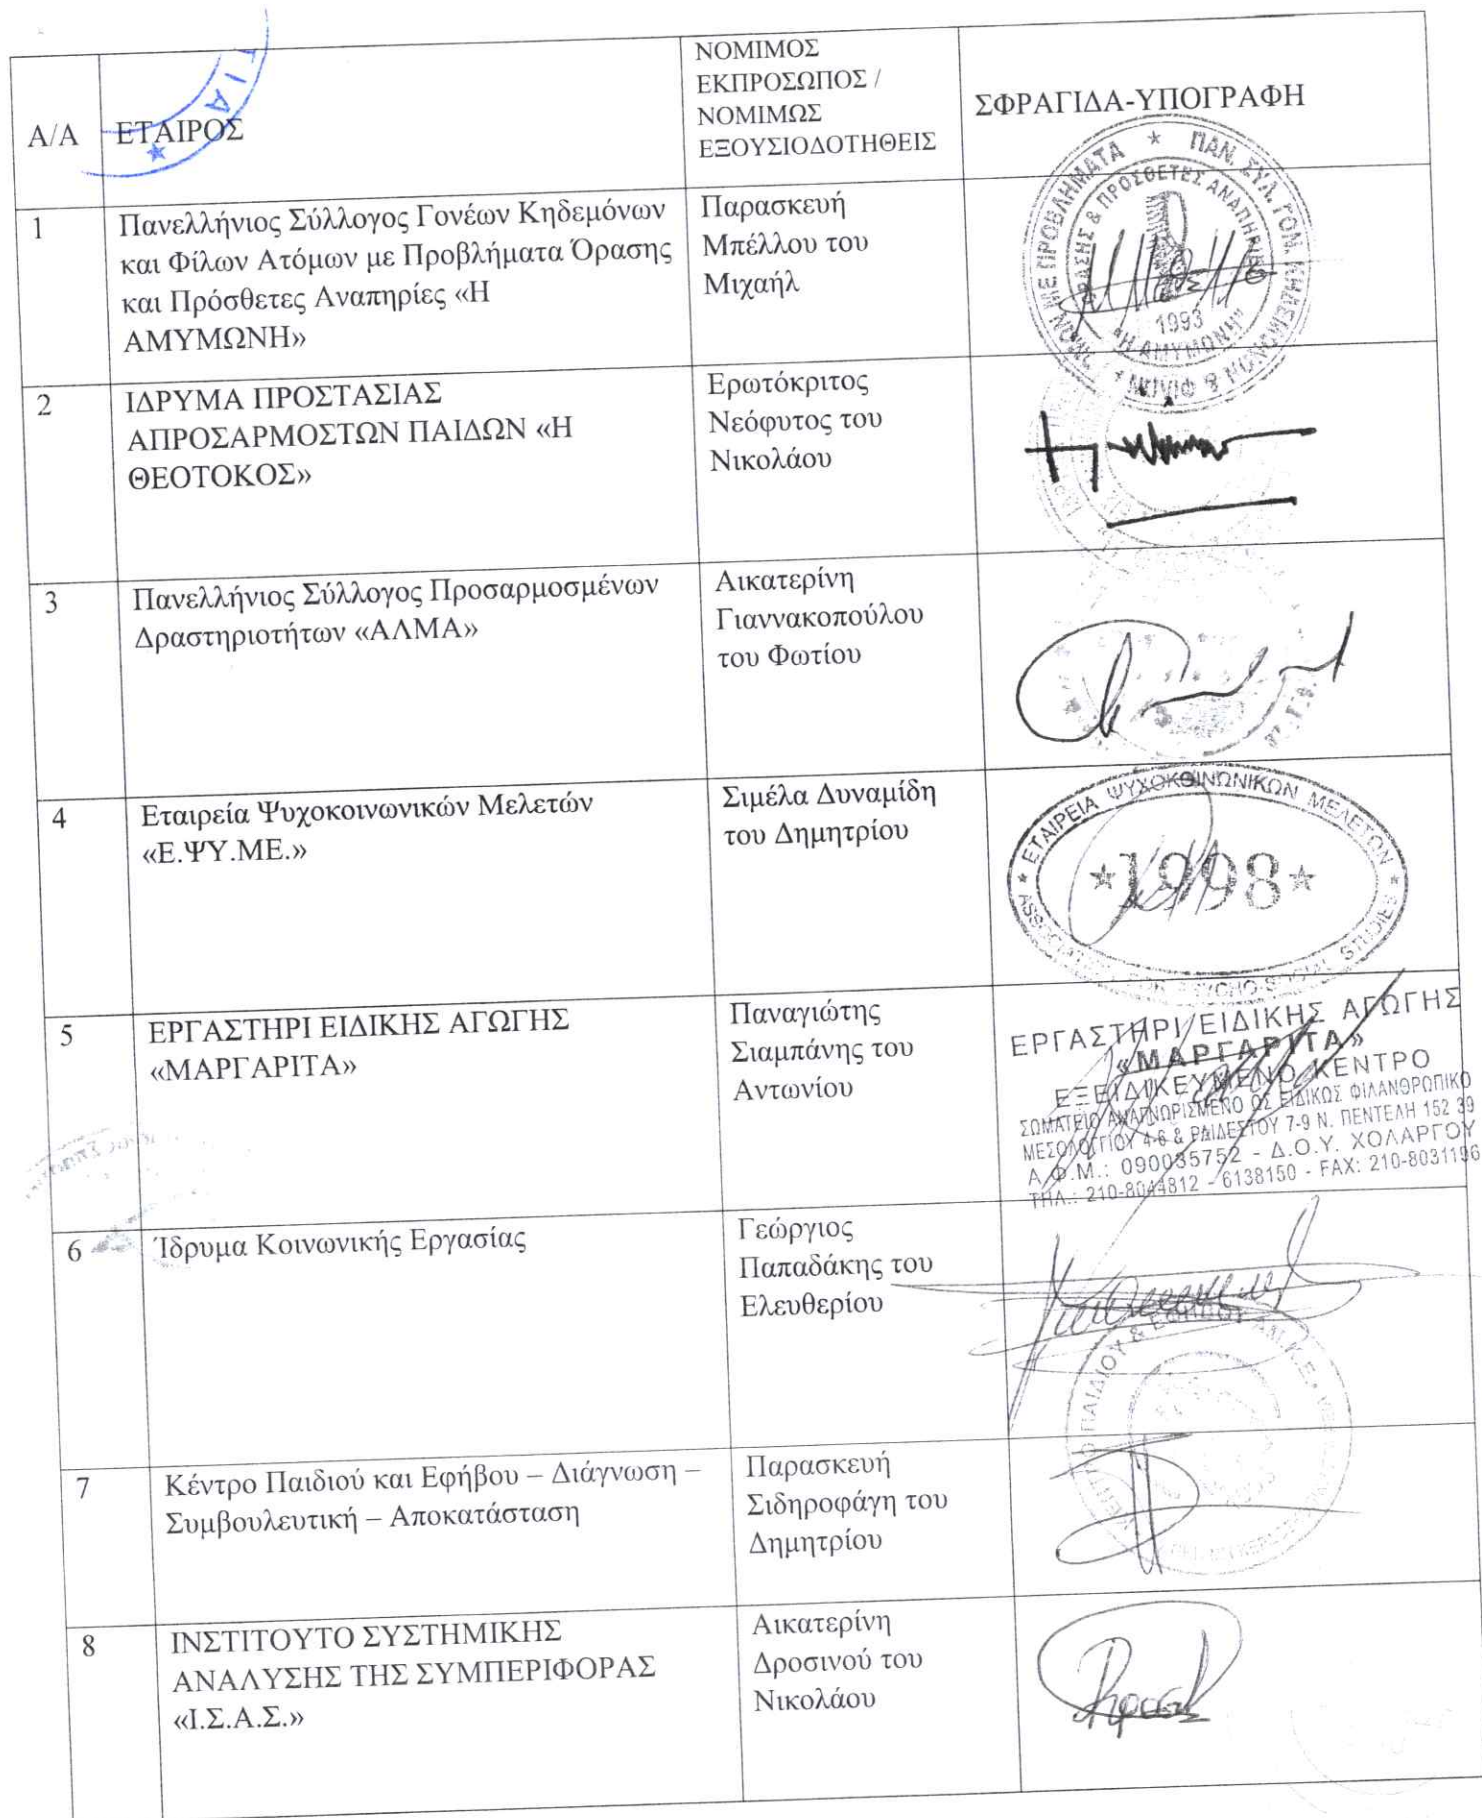 Α/Α
ΕΤΑΙΡΟΣ
ΝΟΜΙΜΟΣ
ΕΚΠΡΟΣΩΠΟΣ /
ΝΟΜΙΜΩΣ
ΕΞΟΥΣΙΟΔΟΤΗΘΕΙΣ
ΣΦΡΑΓΙΔΑ-ΥΠΟΓΡΑΦΗ
1
Πανελλήνιος Σύλλογος Γονέων Κηδεμόνων
και Φίλων Ατόμων με Προβλήματα Όρασης
και Πρόσθετες Αναπηρίες «Η
ΑΜΥΜΩΝΗ»
Παρασκευή
Μπέλλου του
Μιχαήλ
ΜΕ ΠΡΟΒΛΗΜΑΤΑ * ΠΑΝ. ΣΥΛ. ΓΟΝ. ΚΗΔΕΜΟΝΩΝ & ΦΙΛΩΝ
ΟΡΑΣΗΣ & ΠΡΟΣΘΕΤΕΣ ΑΝΑΠΗΡΙΕΣ
1993
"Η ΑΜΥΜΩΝΗ"
2
ΙΔΡΥΜΑ ΠΡΟΣΤΑΣΙΑΣ
ΑΠΡΟΣΑΡΜΟΣΤΩΝ ΠΑΙΔΩΝ «Η
ΘΕΟΤΟΚΟΣ»
Ερωτόκριτος
Νεόφυτος του
Νικολάου
3
Πανελλήνιος Σύλλογος Προσαρμοσμένων
Δραστηριοτήτων «ΑΛΜΑ»
Αικατερίνη
Γιαννακοπούλου
του Φωτίου
4
Εταιρεία Ψυχοκοινωνικών Μελετών
«Ε.ΨΥ.ΜΕ.»
Σιμέλα Δυναμίδη
του Δημητρίου
* ΕΤΑΙΡΕΙΑ ΨΥΧΟΚΟΙΝΩΝΙΚΩΝ ΜΕΛΕΤΩΝ *
*1998*
STUDIES
5
ΕΡΓΑΣΤΗΡΙ ΕΙΔΙΚΗΣ ΑΓΩΓΗΣ
«ΜΑΡΓΑΡΙΤΑ»
Παναγιώτης
Σιαμπάνης του
Αντωνίου
ΕΡΓΑΣΤΗΡΙ ΕΙΔΙΚΗΣ ΑΓΩΓΗΣ
«ΜΑΡΓΑΡΙΤΑ»
ΕΞΕΙΔΙΚΕΥΜΕΝΟ ΚΕΝΤΡΟ
ΣΩΜΑΤΕΙΟ ΑΝΑΓΝΩΡΙΣΜΕΝΟ ΩΣ ΕΙΔΙΚΩΣ ΦΙΛΑΝΘΡΩΠΙΚΟ
ΜΕΣΟΛΟΓΓΙΟΥ 4-6 & ΡΑΙΔΕΣΤΟΥ 7-9 Ν. ΠΕΝΤΕΛΗ 152 39
Α.Φ.Μ.: 090035752 - Δ.Ο.Υ. ΧΟΛΑΡΓΟΥ
ΤΗΛ.: 210-8044812 - 6138150 - FAX: 210-8031196
6
Ίδρυμα Κοινωνικής Εργασίας
Γεώργιος
Παπαδάκης του
Ελευθερίου
7
Κέντρο Παιδιού και Εφήβου – Διάγνωση –
Συμβουλευτική – Αποκατάσταση
Παρασκευή
Σιδηροφάγη του
Δημητρίου
ΠΑΙΔΙΟΥ & ΕΦΗΒΟΥ
8
ΙΝΣΤΙΤΟΥΤΟ ΣΥΣΤΗΜΙΚΗΣ
ΑΝΑΛΥΣΗΣ ΤΗΣ ΣΥΜΠΕΡΙΦΟΡΑΣ
«Ι.Σ.Α.Σ.»
Αικατερίνη
Δροσινού του
Νικολάου